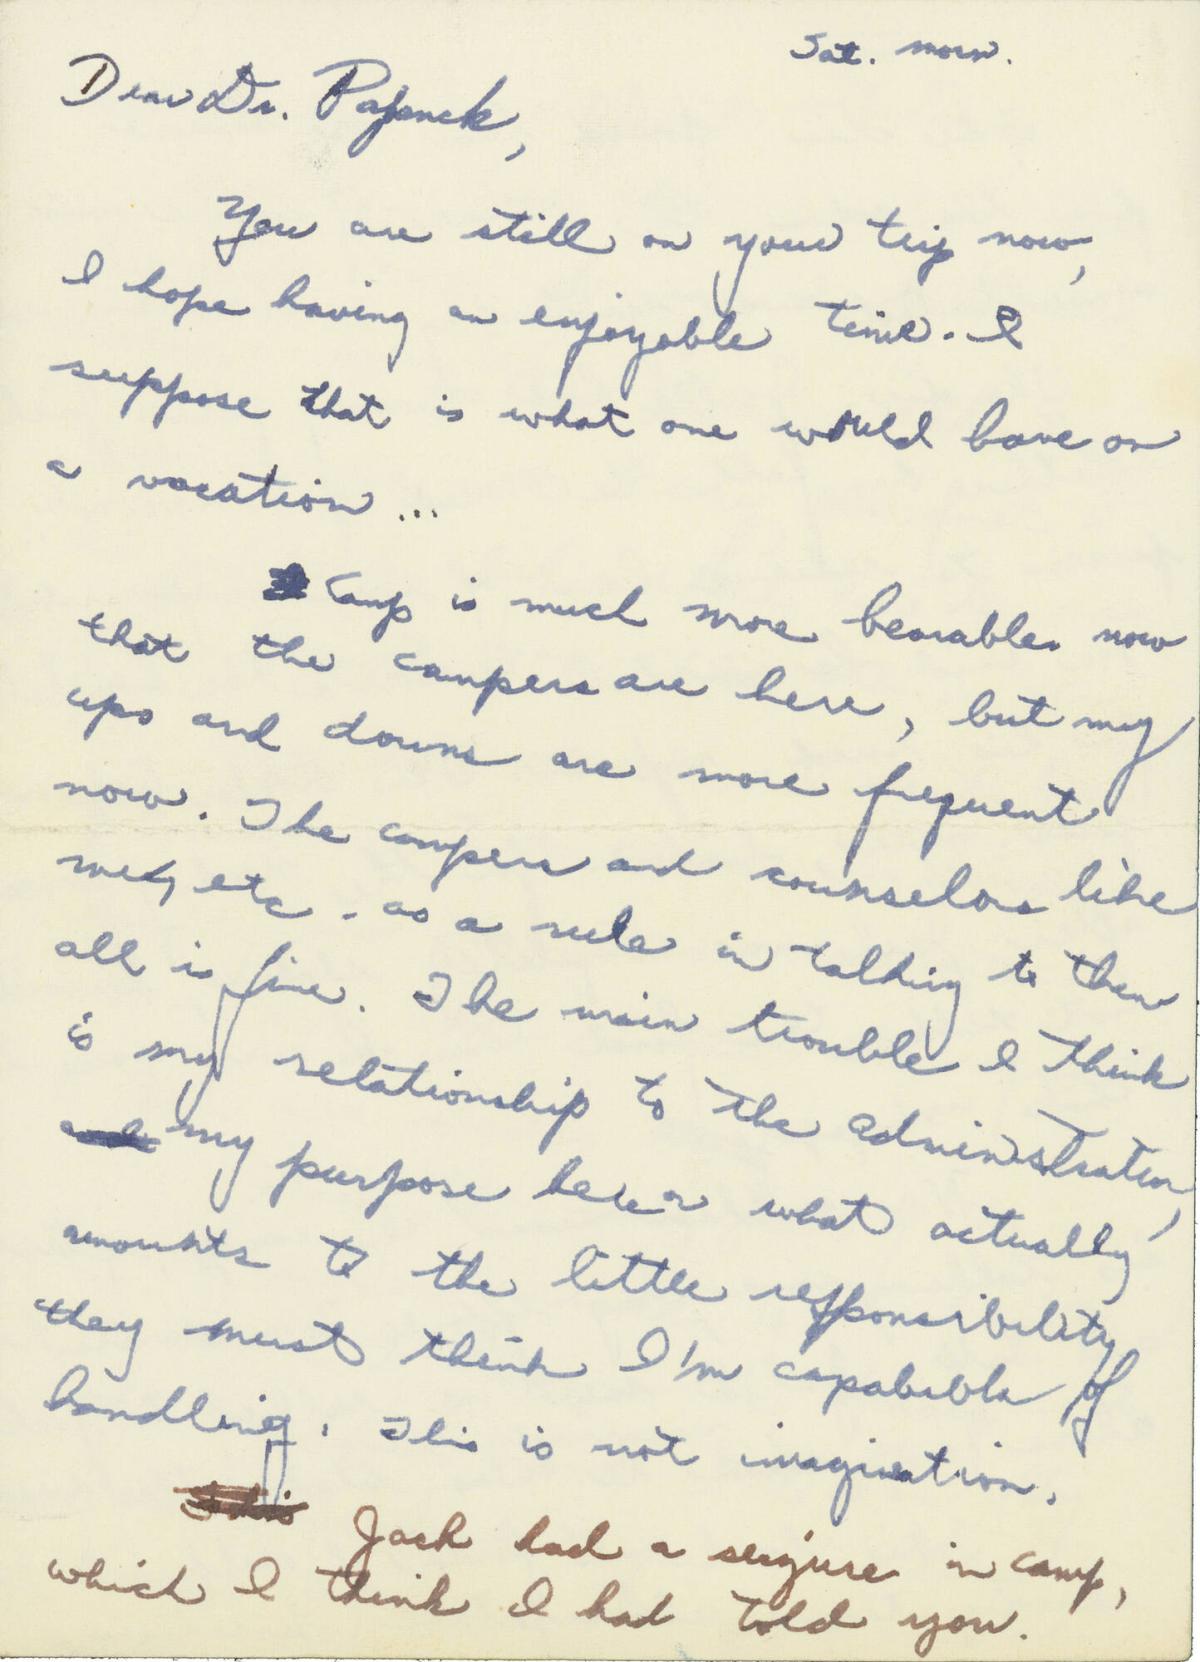 Sat. morn.
Dear Dr. Papanek,
You are still on your trip now,
I hope having an enjoyable time. I
suppose that is what one would have on
a vacation...
Camp is much more bearable now
that the campers are here, but my
ups and downs are more frequent
now. The campers and counselors like
me, etc. - as a rule in talking to them
all is fine. The main trouble I think
is my relationship to the administration,
my purpose here or what actually
amounts to the little responsibility
they must think I'm capabible of
handling. This is not imagination.
Jack had a seizure in camp,
which I think I had told you.